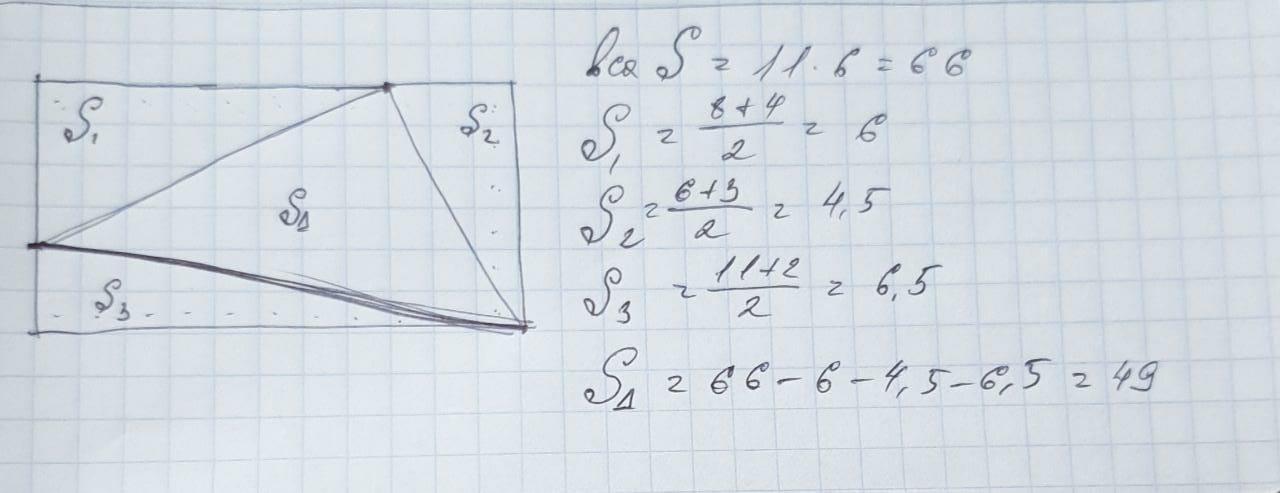 S₁
S₂
S∆
S₃
вся S = 11 · 6 = 66
S₁ = (8 + 4)/2 = 6
S₂ = (6 + 3)/2 = 4,5
S₃ = (11 + 2)/2 = 6,5
S∆ = 66 - 6 - 4,5 - 6,5 = 49